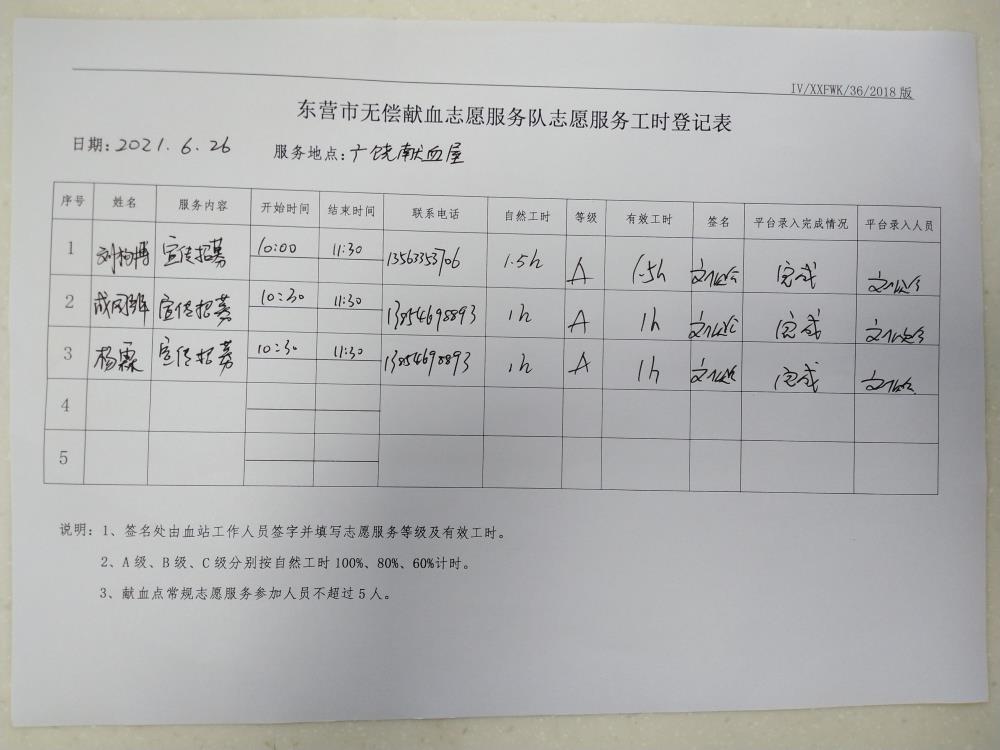 IV/XXFWK/36/2018 版
东营市无偿献血志愿服务队志愿服务工时登记表
日期: 2021.6.26 服务地点: 广饶献血屋
序号 姓名 服务内容 开始时间 结束时间 联系电话 自然工时 等级 有效工时 签名 平台录入完成情况 平台录入人员
1 宣传招募 10:00 11:30 13563353706 1.5h A 1.5h 完成
2 宣传招募 10:30 11:30 13854698893 1h A 1h 完成
3 杨霖 宣传招募 10:30 11:30 13854698893 1h A 1h 完成
4
5
说明: 1、签名处由血站工作人员签字并填写志愿服务等级及有效工时。
2、A 级、B 级、C 级分别按自然工时 100%、80%、60%计时。
3、献血点常规志愿服务参加人员不超过 5 人。